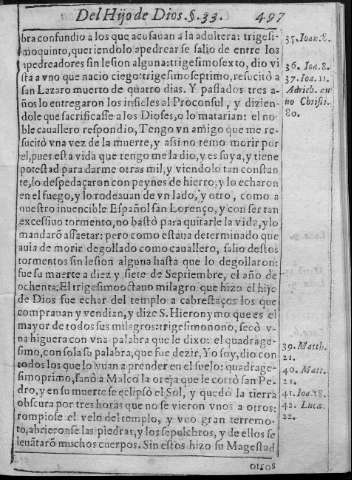 Del Hijo de Dios. §. 33. 497
bra confundio a los que acusauan a la adultera: trigesi-
moquinto, queriendolo apedrear se salio de entre los
apedreadores sin lesion alguna: trigesimosexto, dio vi
sta a vno que nacio ciego: trigesimoseptimo, resucitò a
san Lazaro muerto de quatro dias. Y passados tres a-
ños lo entregaron los infieles al Proconsul, y dizien-
dole que sacrificasse a los Dioses, o lo matarian: el no-
ble cauallero respondio, Tengo vn amigo que me re-
sucitò vna vez de la muerte, y assi no temo morir por
el, pues esta vida que tengo me la dio, y es suya, y tiene
potestad para darme otras mil, y viendolo tan constan
te, lo despedaçaron con peynes de hierro, y lo echaron
en el fuego, y lo rodeauan de vn lado, y otro, como a
nuestro inuencible Español san Lorenço, y con ser tan
excessiuo tormento, no bastò para quitarle la vida, y lo
mandarõ assaetar: pero como estaua determinado que
auia de morir degollado como cauallero, salio destos
tormentos sin lesion alguna hasta que lo degollaron:
fue su muerte a diez y siete de Septiembre, el año de
ochenta. El trigesimooctauo milagro que hizo el hijo
de Dios fue echar del templo a cabrestaços los que
comprauan y vendian, y dize S. Hieronymo que es el
mayor de todos sus milagros: trigesimonono, secò v-
na higuera con vna palabra que le dixo: el quadrage-
simo, con sola su palabra, que fue dezir, Yo soy, dio con
todos los que lo vuan a prender en el suelo: quadrage-
simoprimo, sanò a Malco la oreja que le cortò san Pe-
dro, y en su muerte se eclipsò el Sol, y quedò la tierra
obscura por tres horas que no se vieron vnos a otros:
rompiose el velo del templo, y vuo gran terremo-
to, abrieronse las piedras, y los sepulchros, y de ellos se
leuãtarõ muchos cuerpos. Sin estos hizo su Magestad
otros
35. Ioan. 8.
36. Ioa. 8.
37. Ioa. 11.
Adrich. an
no Christi.
80.
39. Matth.
21.
40. Matt.
21.
41. Ioa. 18.
42. Luca.
22.